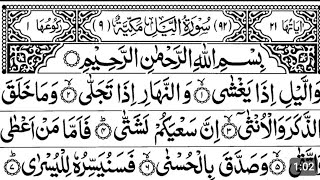 اٰيَاتُهَا ٢١ (٩٢) سُوْرَةُ الَّيْلِ مَكِّيَّةٌ (٩) رُكُوْعُهَا ١
بِسْمِ اللّٰهِ الرَّحْمٰنِ الرَّحِيْمِ
وَالَّيْلِ اِذَا يَغْشٰى ۙ‏﴿۱﴾ وَالنَّهَارِ اِذَا تَجَلّٰى ۙ‏﴿۲﴾ وَمَا خَلَقَ
الذَّكَرَ وَالْاُنْثٰٓى ۙ‏﴿۳﴾ اِنَّ سَعْيَكُمْ لَشَتّٰى ؕ‏﴿۴﴾ فَاَمَّا مَنْ اَعْطٰى
وَاتَّقٰى ۙ‏﴿۵﴾ وَصَدَّقَ بِالْحُسْنٰى ۙ‏﴿۶﴾ فَسَنُيَسِّرُهٗ لِلْيُسْرٰى ؕ‏﴿۷﴾
1:02